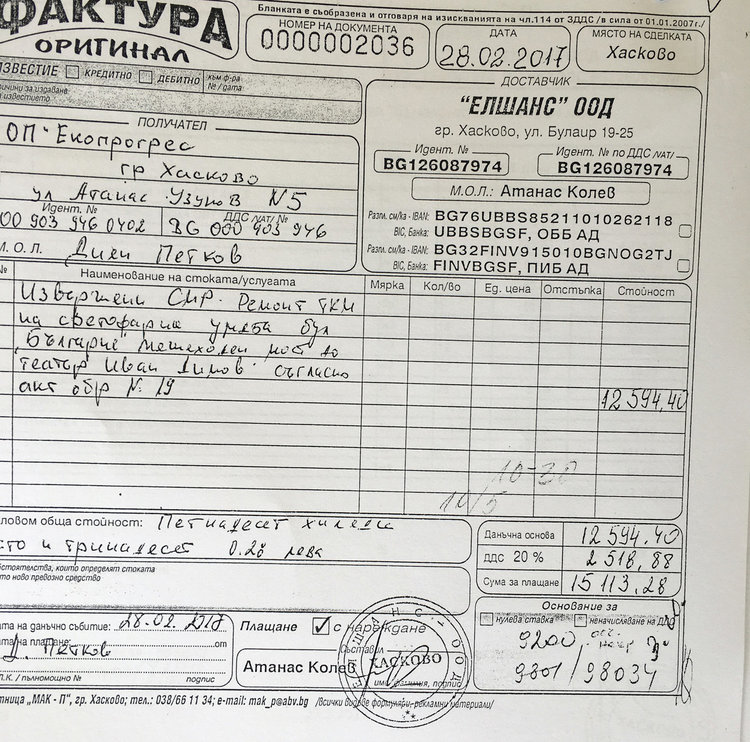 Бланката е съобразена и отговаря на изискванията на чл.114 от ЗДДС /в сила от 01.01.2007г./
ФАКТУРА
ОРИГИНАЛ
НОМЕР НА ДОКУМЕНТА
0000002036
ДАТА
28.02.2017
МЯСТО НА СДЕЛКАТА
Хасково
ИЗВЕСТИЕ КРЕДИТНО ДЕБИТНО
към ф-ра
№ / дата
ПОЛУЧАТЕЛ
ОП "Екопрогрес
гр Хасково
ул Атанас Узунов N5
Идент. № ДДС /VAT/ №
000 903 946 0402 BG 000 903 946
М. О. Л. Диян Петков
ДОСТАВЧИК
"ЕЛШАНС" ООД
гр. Хасково, ул. Булаир 19-25
Идент. № Идент. № по ДДС /VAT/
BG126087974 BG126087974
М.О.Л.: Атанас Колев
Разпл. см/ка - IBAN: BG76UBBS85211010262118
BIC, Банка: UBBSBGSF, ОББ АД
Разпл. см/ка - IBAN: BG32FINV915010BGNOG2TJ
BIC, Банка: FINVBGSF, ПИБ АД
№ Наименование на стоката/услугата Мярка Кол/во Ед. цена Отстъпка Стойност
Извършени СМР. Ремонт ТКМ
на светофарна уредба бул
"България" пешеходен мост до
театър Иван Димов съгласно
акт обр № 19 12 594,40
ловом обща стойност: Петнадесет хиледи
сто и тринадесет 0.28 лева
стоятелства, които определят стоката
то ново превозно средство
Данъчна основа 12 594.40
ДДС 20 % 2 518,88
Сума за плащане 15 113,28
Основание за
нулева ставка неначисляване на ДДС
9200
9801 / 98034
ата на данъчно събитие: 28.02.2017
ата на плащане: от
Д. Петков
П.К. / пълномощно № подпис
Плащане ✓ с нареждане
Съставил
Атанас Колев
име, фамилия, подпис
ЕЛШАНС - ООД
ХАСКОВО
тница "МАК - П", гр. Хасково; тел.: 038/66 11 34; e-mail: mak_p@abv.bg /всички видове формуляри, рекламни материали/